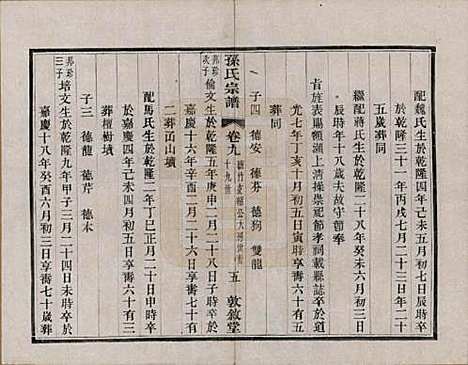 配魏氏生於乾隆四年己未五月初七日辰時卒
於乾隆三十一年丙戌七月二十三日年二十
五歲葬同
繼配蔣氏生於乾隆二十八年癸未六月初三日
辰時年十八歲夫故守節奉
旨旌表扁額湖上清操崇祀節孝祠載縣誌卒於道
光七年丁亥十月初六日寅時享壽六十有五
葬同
子四 德安 德芬 德狗 雙龍
孫氏宗譜 卷九 十九世 五 敦敘堂
邦珍次子 倫文生於乾隆五年庚申二月二十八日子時卒於
嘉慶十六年辛酉二月二十六日享壽七十有
二葬甬山墳
配馬氏生於乾隆二年丁巳正月二十日申時卒
於嘉慶四年己未二月初六日享壽六十有三
葬檀樹墳
子三 德龍 德芹 德木
邦珍三子 培文生於乾隆九年甲子三月二十四日未時卒於
嘉慶十八年癸酉六月初三日享壽七十歲葬